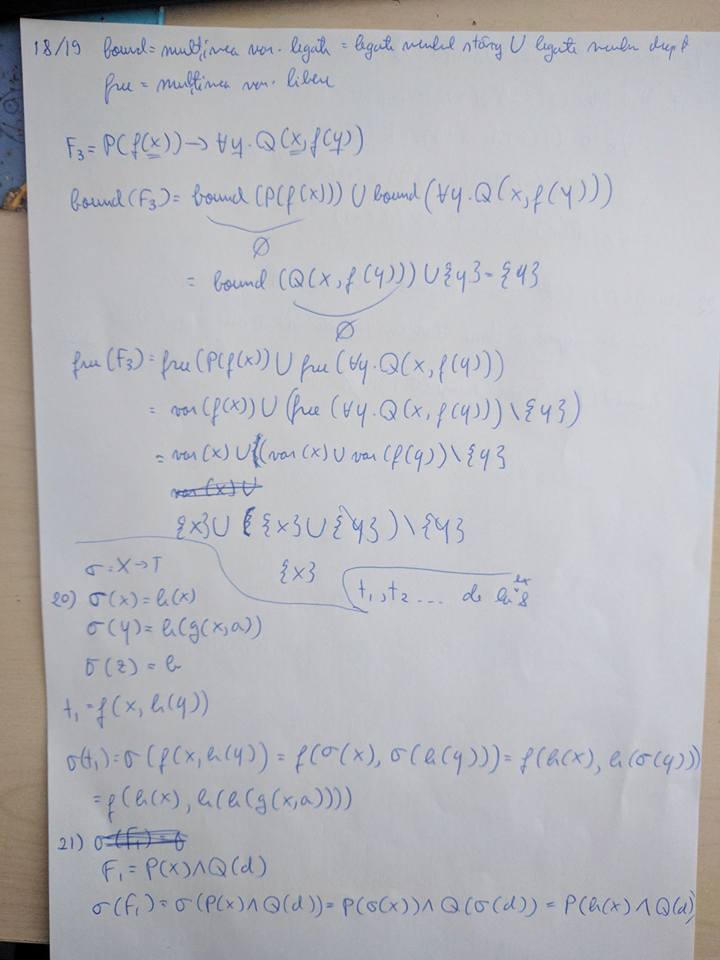 18/19 bound = mulțimea var. legate = legate membrul stâng ∪ legate membru drept
free = mulțimea var. libere
F₃ = P(f(x)) → ∀y.Q(x,f(y))
bound(F₃) = bound(P(f(x))) ∪ bound(∀y.Q(x,f(y)))
∅
= bound(Q(x,f(y))) ∪ {y} = {y}
∅
free(F₃) = free(P(f(x)) ∪ free(∀y.Q(x,f(y)))
= var(f(x)) ∪ (free(∀y.Q(x,f(y))) \ {y})
= var(x) ∪ ((var(x) ∪ var(f(y)) \ {y}
var(x) ∪
{x} ∪ ({x} ∪ {y}) \ {y}
{x}
σ: X→T
t₁, t₂ ... de la ex 8
20) σ(x) = h(x)
σ(y) = h(g(x,a))
σ(z) = b
t₁ = f(x, h(y))
σ(t₁) = σ(f(x,h(y)) = f(σ(x), σ(h(y))) = f(h(x), h(σ(y)))
= f(h(x), h(h(g(x,a))))
21) σ(F₁) = σ
F₁ = P(x) ∧ Q(d)
σ(F₁) = σ(P(x) ∧ Q(d)) = P(σ(x)) ∧ Q(σ(d)) = P(h(x) ∧ Q(d)